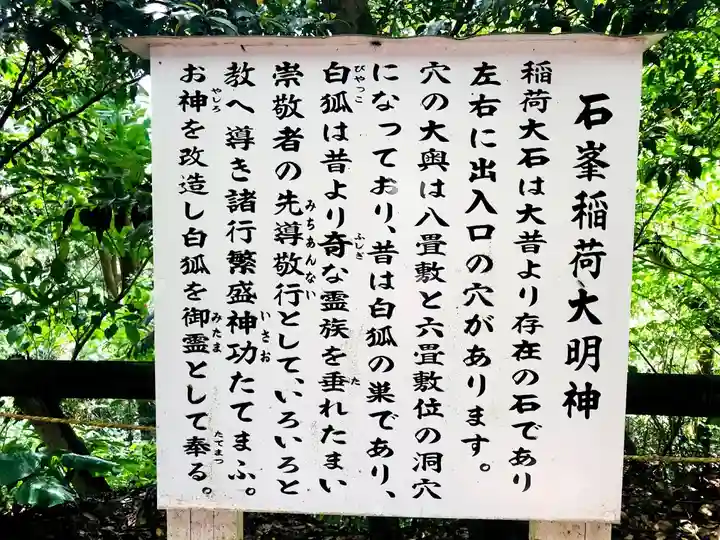 石峯稲荷大明神
稲荷大石は大昔より存在の石であり
左右に出入口の穴があります。
穴の大奥は八畳敷と六畳敷位の洞穴
になっており、昔は白狐の巣であり、
白狐は昔より奇な霊族を垂れたまい
びゃっこ
ふしぎ
た
崇敬者の先導敬行として、いろいろと
みちあんない
教へ導き諸行繁盛神功たてまふ。
いさお
お神を改造し白狐を御霊として奉る。
やしろ
みたま
たてまつ